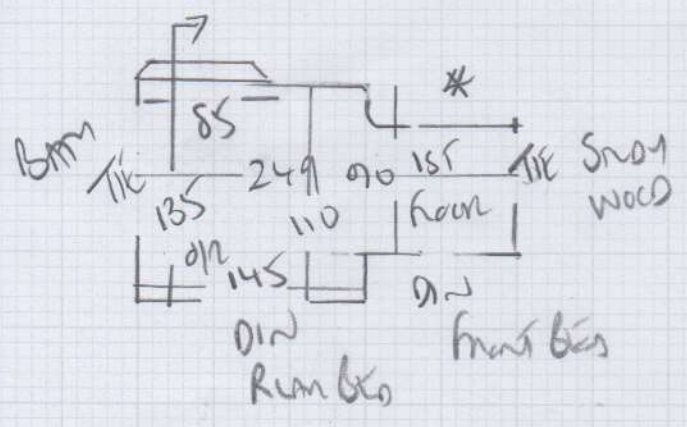 *
85
BATH
TIE
249
90
1ST
TIE
STUDY
WOLD
135
110
FLOOR
O/R
145
DIN
DIN
REAR BED
FRONT BED